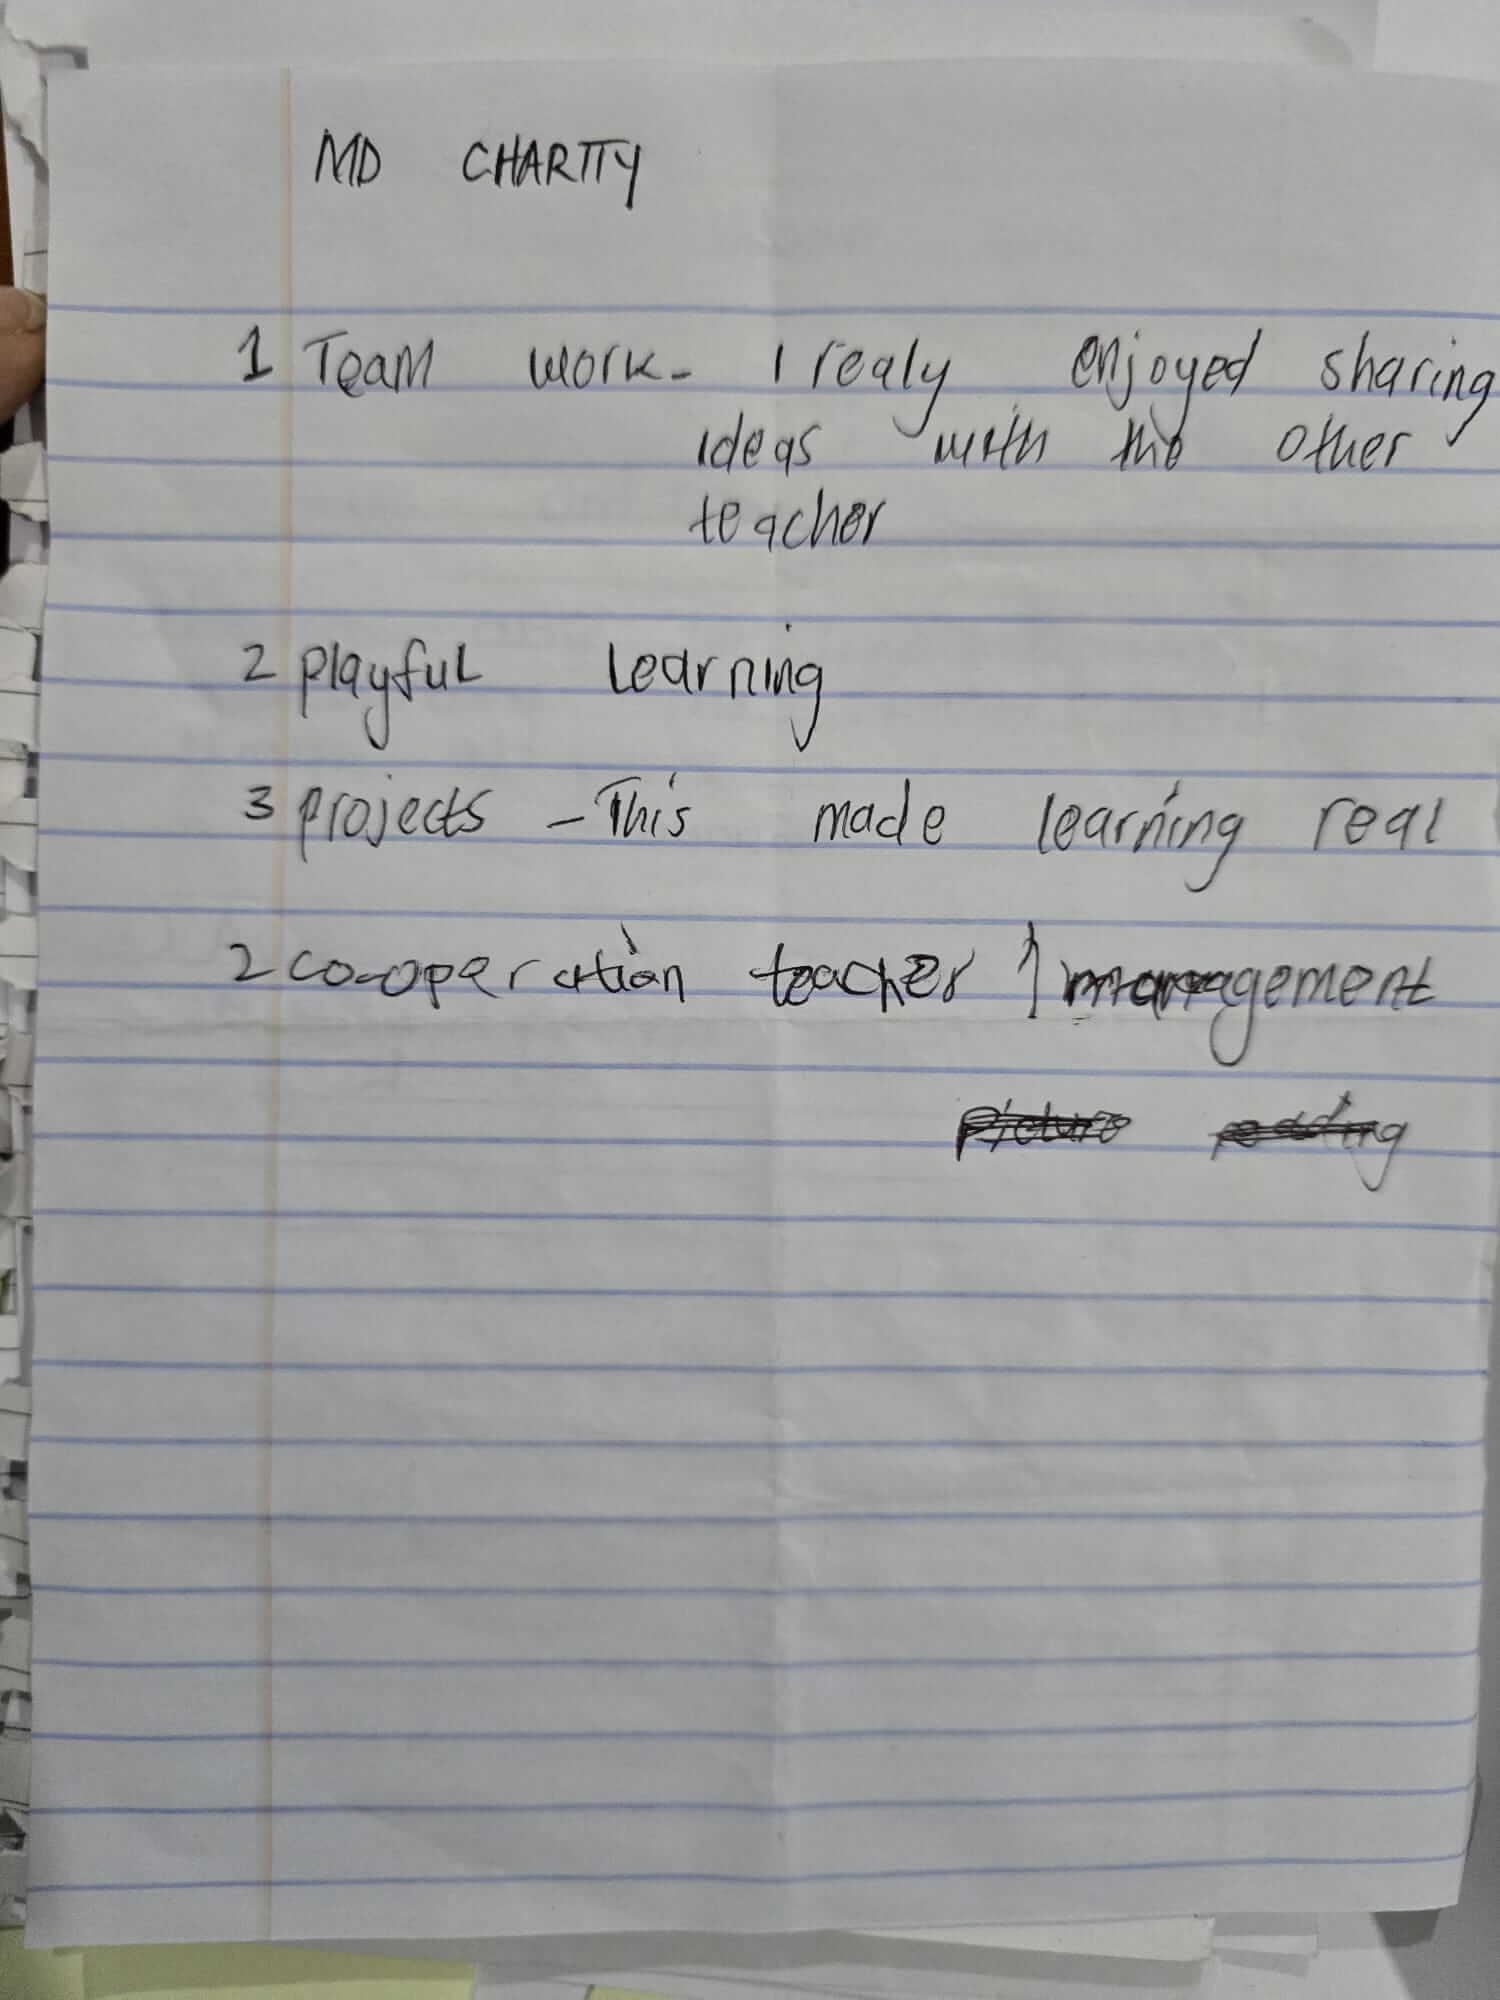 MD CHARITY
1 Team work - I realy enjoyed sharing
ideas with the other
teacher
2 playful learning
3 projects - This made learning real
2 co-operation teacher / management
picture reading